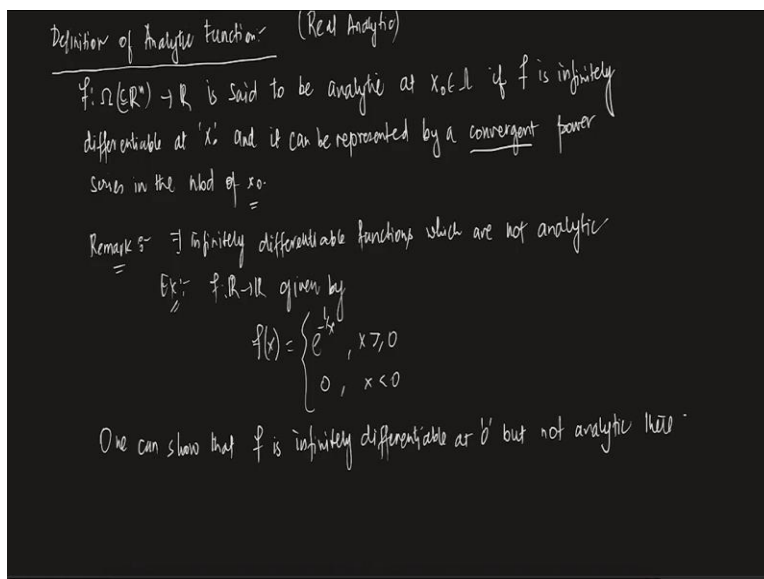 Definition of Analytic Function:- (Real Analytic)
f: Ω(⊆ℝⁿ) → ℝ is said to be analytic at x₀ ∈ Ω if f is infinitely
differentiable at 'x₀' and it can be represented by a convergent power
series in the nbd of x₀.
Remark :- ∃ infinitely differentiable functions which are not analytic
Ex:- f: ℝ→ℝ given by
f(x) = { e^(-1/x) , x ≥ 0
0 , x < 0
One can show that f is infinitely differentiable at '0' but not analytic there.